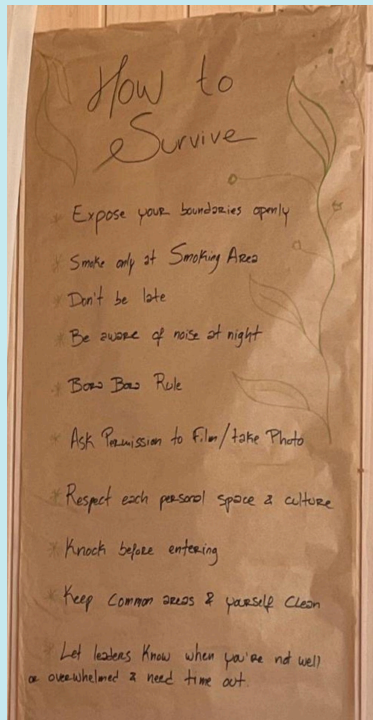 How to
Survive
* Expose your boundaries openly
* Smoke only at Smoking Area
* Don't be late
* Be aware of noise at night
* Rule
* Ask Permission to Film/take Photo
* Respect each personal space & culture
* Knock before entering
* Keep common areas & yourself Clean
* Let leaders know when you're not well
or overwhelmed & need time out.